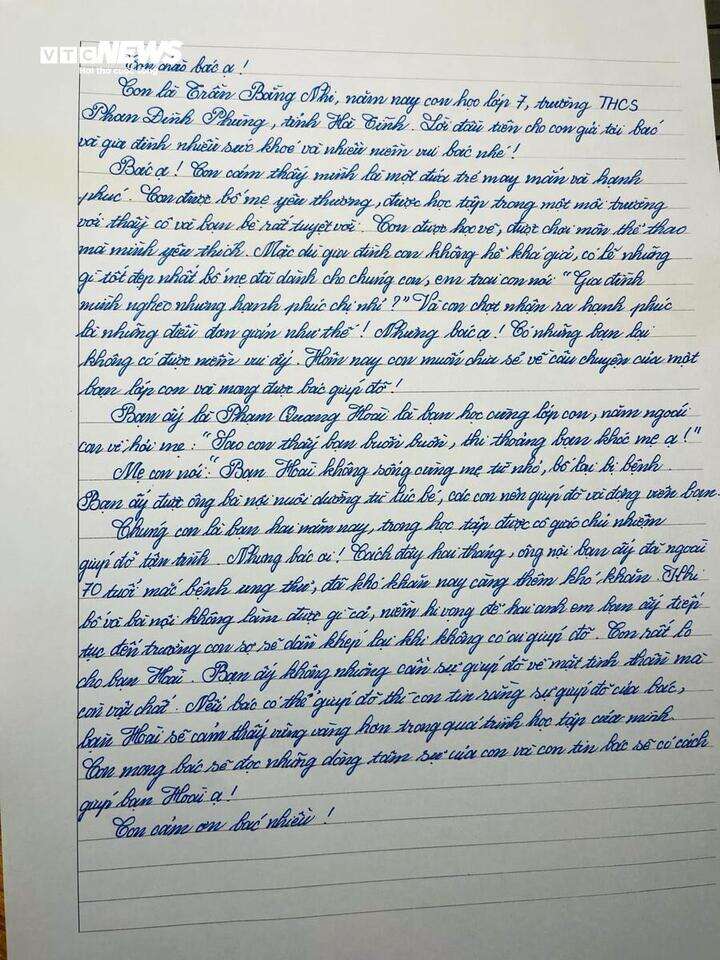 VTC NEWS
Con chào bác ạ !
Con là Trần Băng Nhi, năm nay con học lớp 7, trường THCS
Phan Đình Phùng, tỉnh Hà Tĩnh. Lời đầu tiên cho con gửi tới bác
và gia đình nhiều sức khoẻ và nhiều niềm vui bác nhé !
Bác ạ ! Con cảm thấy mình là một đứa trẻ may mắn và hạnh
phúc. Con được bố mẹ yêu thương, được học tập trong một môi trường
với thầy cô và bạn bè rất tuyệt vời. Con được học vẽ, được chơi môn thể thao
mà mình yêu thích. Mặc dù gia đình con không hề khá giả, có lẽ những
gì tốt đẹp nhất bố mẹ đã dành cho chúng con, em trai con nói "Gia đình
mình nghèo nhưng hạnh phúc chị nhỉ ?" Và con chợt nhận ra hạnh phúc
là những điều đơn giản như thế ! Nhưng bác ạ ! Có những bạn lại
không có được niềm vui ấy. Hôm nay con muốn chia sẻ về câu chuyện của một
bạn lớp con và mong được bác giúp đỡ !
Bạn ấy là Phạm Quang Hoài là bạn học cùng lớp con, năm ngoái
con về hỏi mẹ : "Sao con thấy bạn buồn buồn, thi thoảng bạn khóc mẹ ạ !"
Mẹ con nói : "Bạn Hoài không sống cùng mẹ từ nhỏ, bố lại bị bệnh.
Bạn ấy được ông bà nội nuôi dưỡng từ lúc bé, các con nên giúp đỡ và động viên bạn.
Chúng con là bạn hai năm nay, trong học tập được cô giáo chủ nhiệm
giúp đỡ tận tình. Nhưng bác ơi ! Cách đây hai tháng, ông nội bạn ấy đã ngoài
70 tuổi mắc bệnh ung thư, đã khó khăn nay càng thêm khó khăn. Khi
bố và bà nội không làm được gì cả, niềm hi vọng để hai anh em bạn ấy tiếp
tục đến trường con sợ sẽ dần khép lại khi không có ai giúp đỡ. Con rất lo
cho bạn Hoài. Bạn ấy không những cần sự giúp đỡ về mặt tinh thần mà
còn vật chất. Nếu bác có thể giúp đỡ thì con tin rằng sự giúp đỡ của bác,
bạn Hoài sẽ cảm thấy vững vàng hơn trong quá trình học tập của mình.
Con mong bác sẽ đọc những dòng tâm sự của con và con tin bác sẽ có cách
giúp bạn Hoài ạ !
Con cảm ơn bác nhiều !